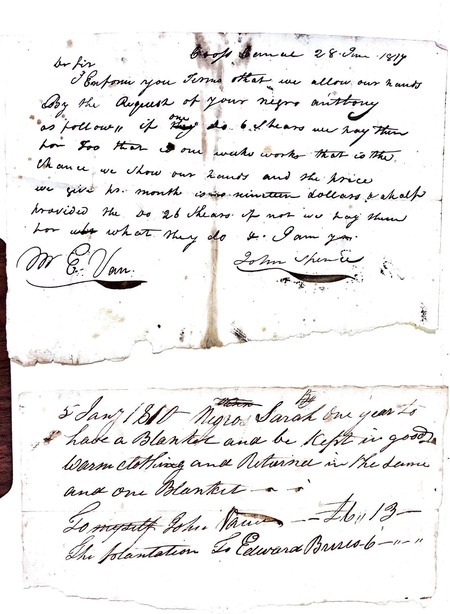 28 June 1817
Dr Sir
I Enform you Terms that we allow our hands
By the Request of your negro anthony
as follow,, if one they do 6 Shears we pay them
for Too that is one weeks works that is the
Chance we Show our hands and the price
we give pr. month is nineteen dollars & a half
provided the do 26 Shears if not we pay them
for what they do &. I am yr.
Mr E. Van
John Spence
5 Jany 1810 Negro Sarah one year to
have a Blanket and be Kept in good
warm clothing and Returned in the Same
and one Blanket
To myself John £6,,13
The plantation To Edward 6